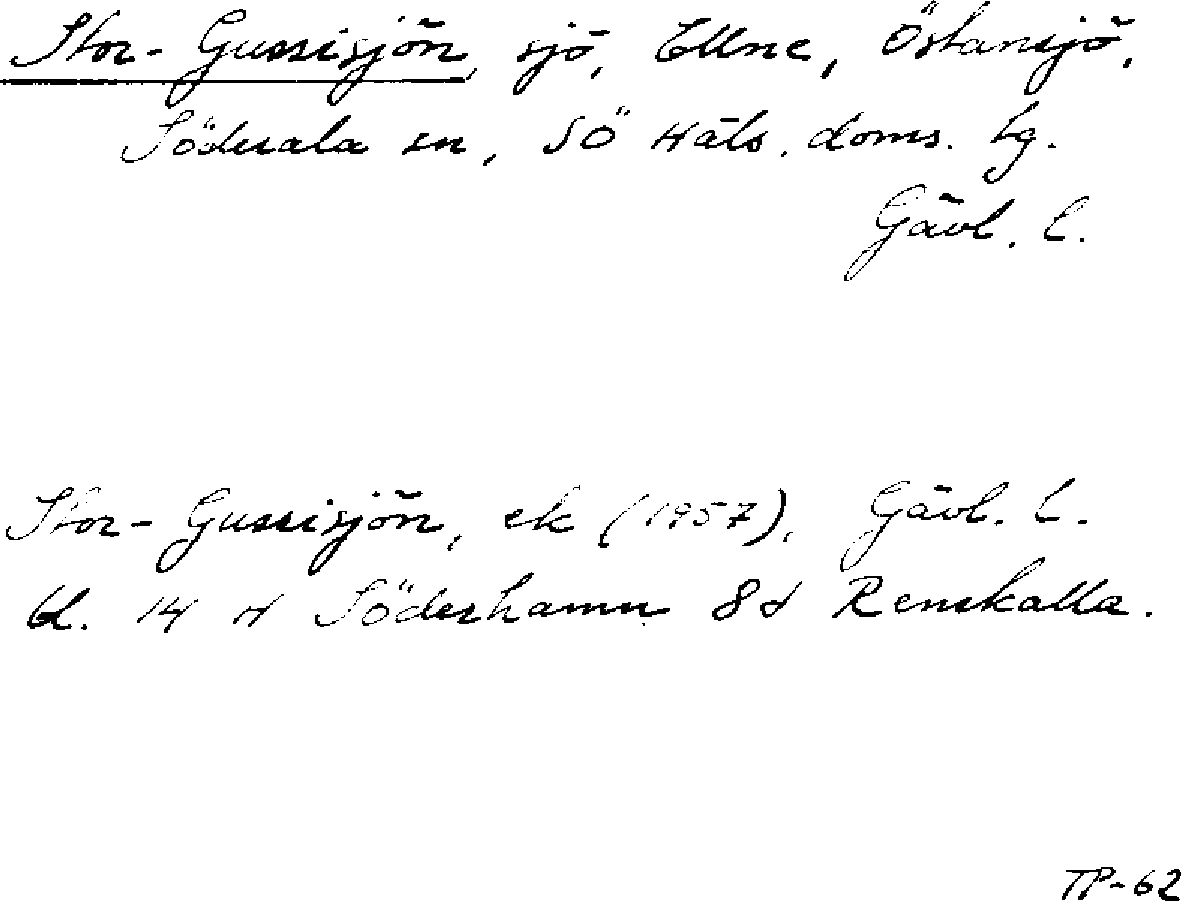 Stor-Gussisjön, sjö, Ellne, Östansjö,
Söderala sn, SÖ Häls. doms. tg.
Gävl. l.
Stor-Gussisjön, ek (1957), Gävl. l.
bl. 14 H Söderhamn 8d Renskalla.
TP-62